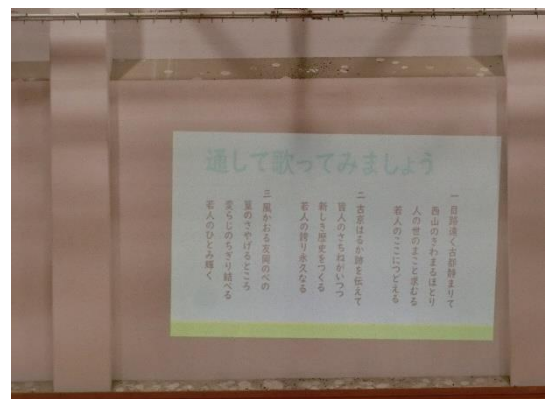 通して歌ってみましょう
一 目路遠く古都静まりて
西山のきわまるほとり
人の世のまこと求むる
若人のここにつどえる
二 古京はるか跡を伝えて
皆人のさちねがいつつ
新しき歴史をつくる
若人の誇り永久なる
三 風かおる友岡のべの
葉のさやげるところ
変らじのちぎり結べる
若人のひとみ輝く